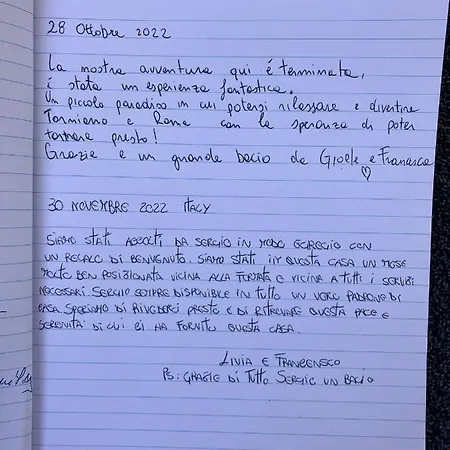 28 Ottobre 2022
La nostra avventura qui è terminata,
è stata un esperienza fantastica.
Un piccolo paradiso in cui potersi rilassare e divertire
Torniamo a Roma con la speranza di poter
tornare presto!
Grazie e un grande bacio da Gioele e Francesca
30 NOVEMBRE 2022 ITALY
SIAMO STATI ACCOLTI DA SERGIO IN MODO EGREGIO CON
UN REGALO DI BENVENUTO. SIAMO STATI IN QUESTA CASA UN MESE
MOLTO BEN POSIZIONATA VICINA ALLA FERMATA E VICINA A TUTTI I SERVIZI
NECESSARI. SERGIO SEMPRE DISPONIBILE IN TUTTO UN VERO PADRONE DI
CASA SPERIAMO DI RIVEDERCI PRESTO E DI RITROVARE QUESTA PACE E
SERENITÀ DI CUI CI HA FORNITO QUESTA CASA.
LIVIA E FRANCESCO
PS: GRAZIE DI TUTTO SERGIO UN BACIO